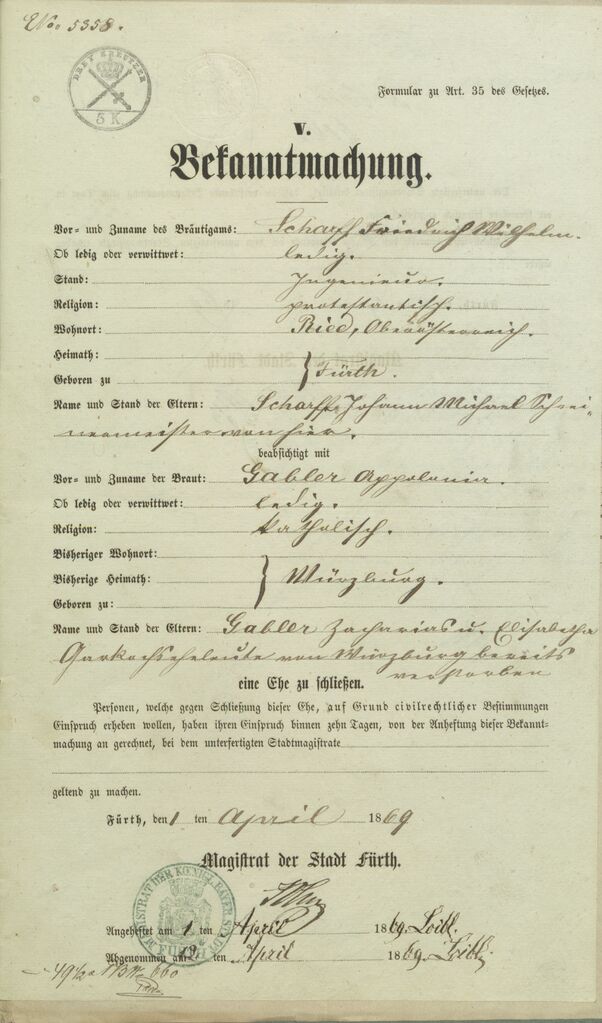 No. 5358.
DREY KREUTZER
3 K.
Formular zu Art. 35 des Gesetzes.
V.
Bekanntmachung.
Vor- und Zuname des Bräutigams: Scharff Friedrich Wilhelm.
Ob ledig oder verwittwet: ledig.
Stand: Ingenieur.
Religion: protestantisch.
Wohnort: Ried, Oberösterreich.
Heimath:
Geboren zu } Fürth.
Name und Stand der Eltern: Scharff, Johann Michael Schrei-
nermeister von hier.
beabsichtigt mit
Vor- und Zuname der Braut: Gabler Appolonia.
Ob ledig oder verwittwet: ledig.
Religion: katholisch.
Bisheriger Wohnort:
Bisherige Heimath: } Würzburg.
Geboren zu:
Name und Stand der Eltern: Gabler Zacharias u. Elisabetha
Garkochseheleute von Würzburg bereits
verstorben
eine Ehe zu schließen.
Personen, welche gegen Schließung dieser Ehe, auf Grund civilrechtlicher Bestimmungen
Einspruch erheben wollen, haben ihren Einspruch binnen zehn Tagen, von der Anheftung dieser Bekannt-
machung an gerechnet, bei dem unterfertigten Stadtmagistrate
geltend zu machen.
Fürth, den 1 ten April 1869
Magistrat der Stadt Fürth.
Angeheftet am 1 ten April 1869. Loibl.
Abgenommen am 12 ten April 1869. Loibl.
MAGISTRAT DER KÖNIGL. BAYER. STADT FÜRTH